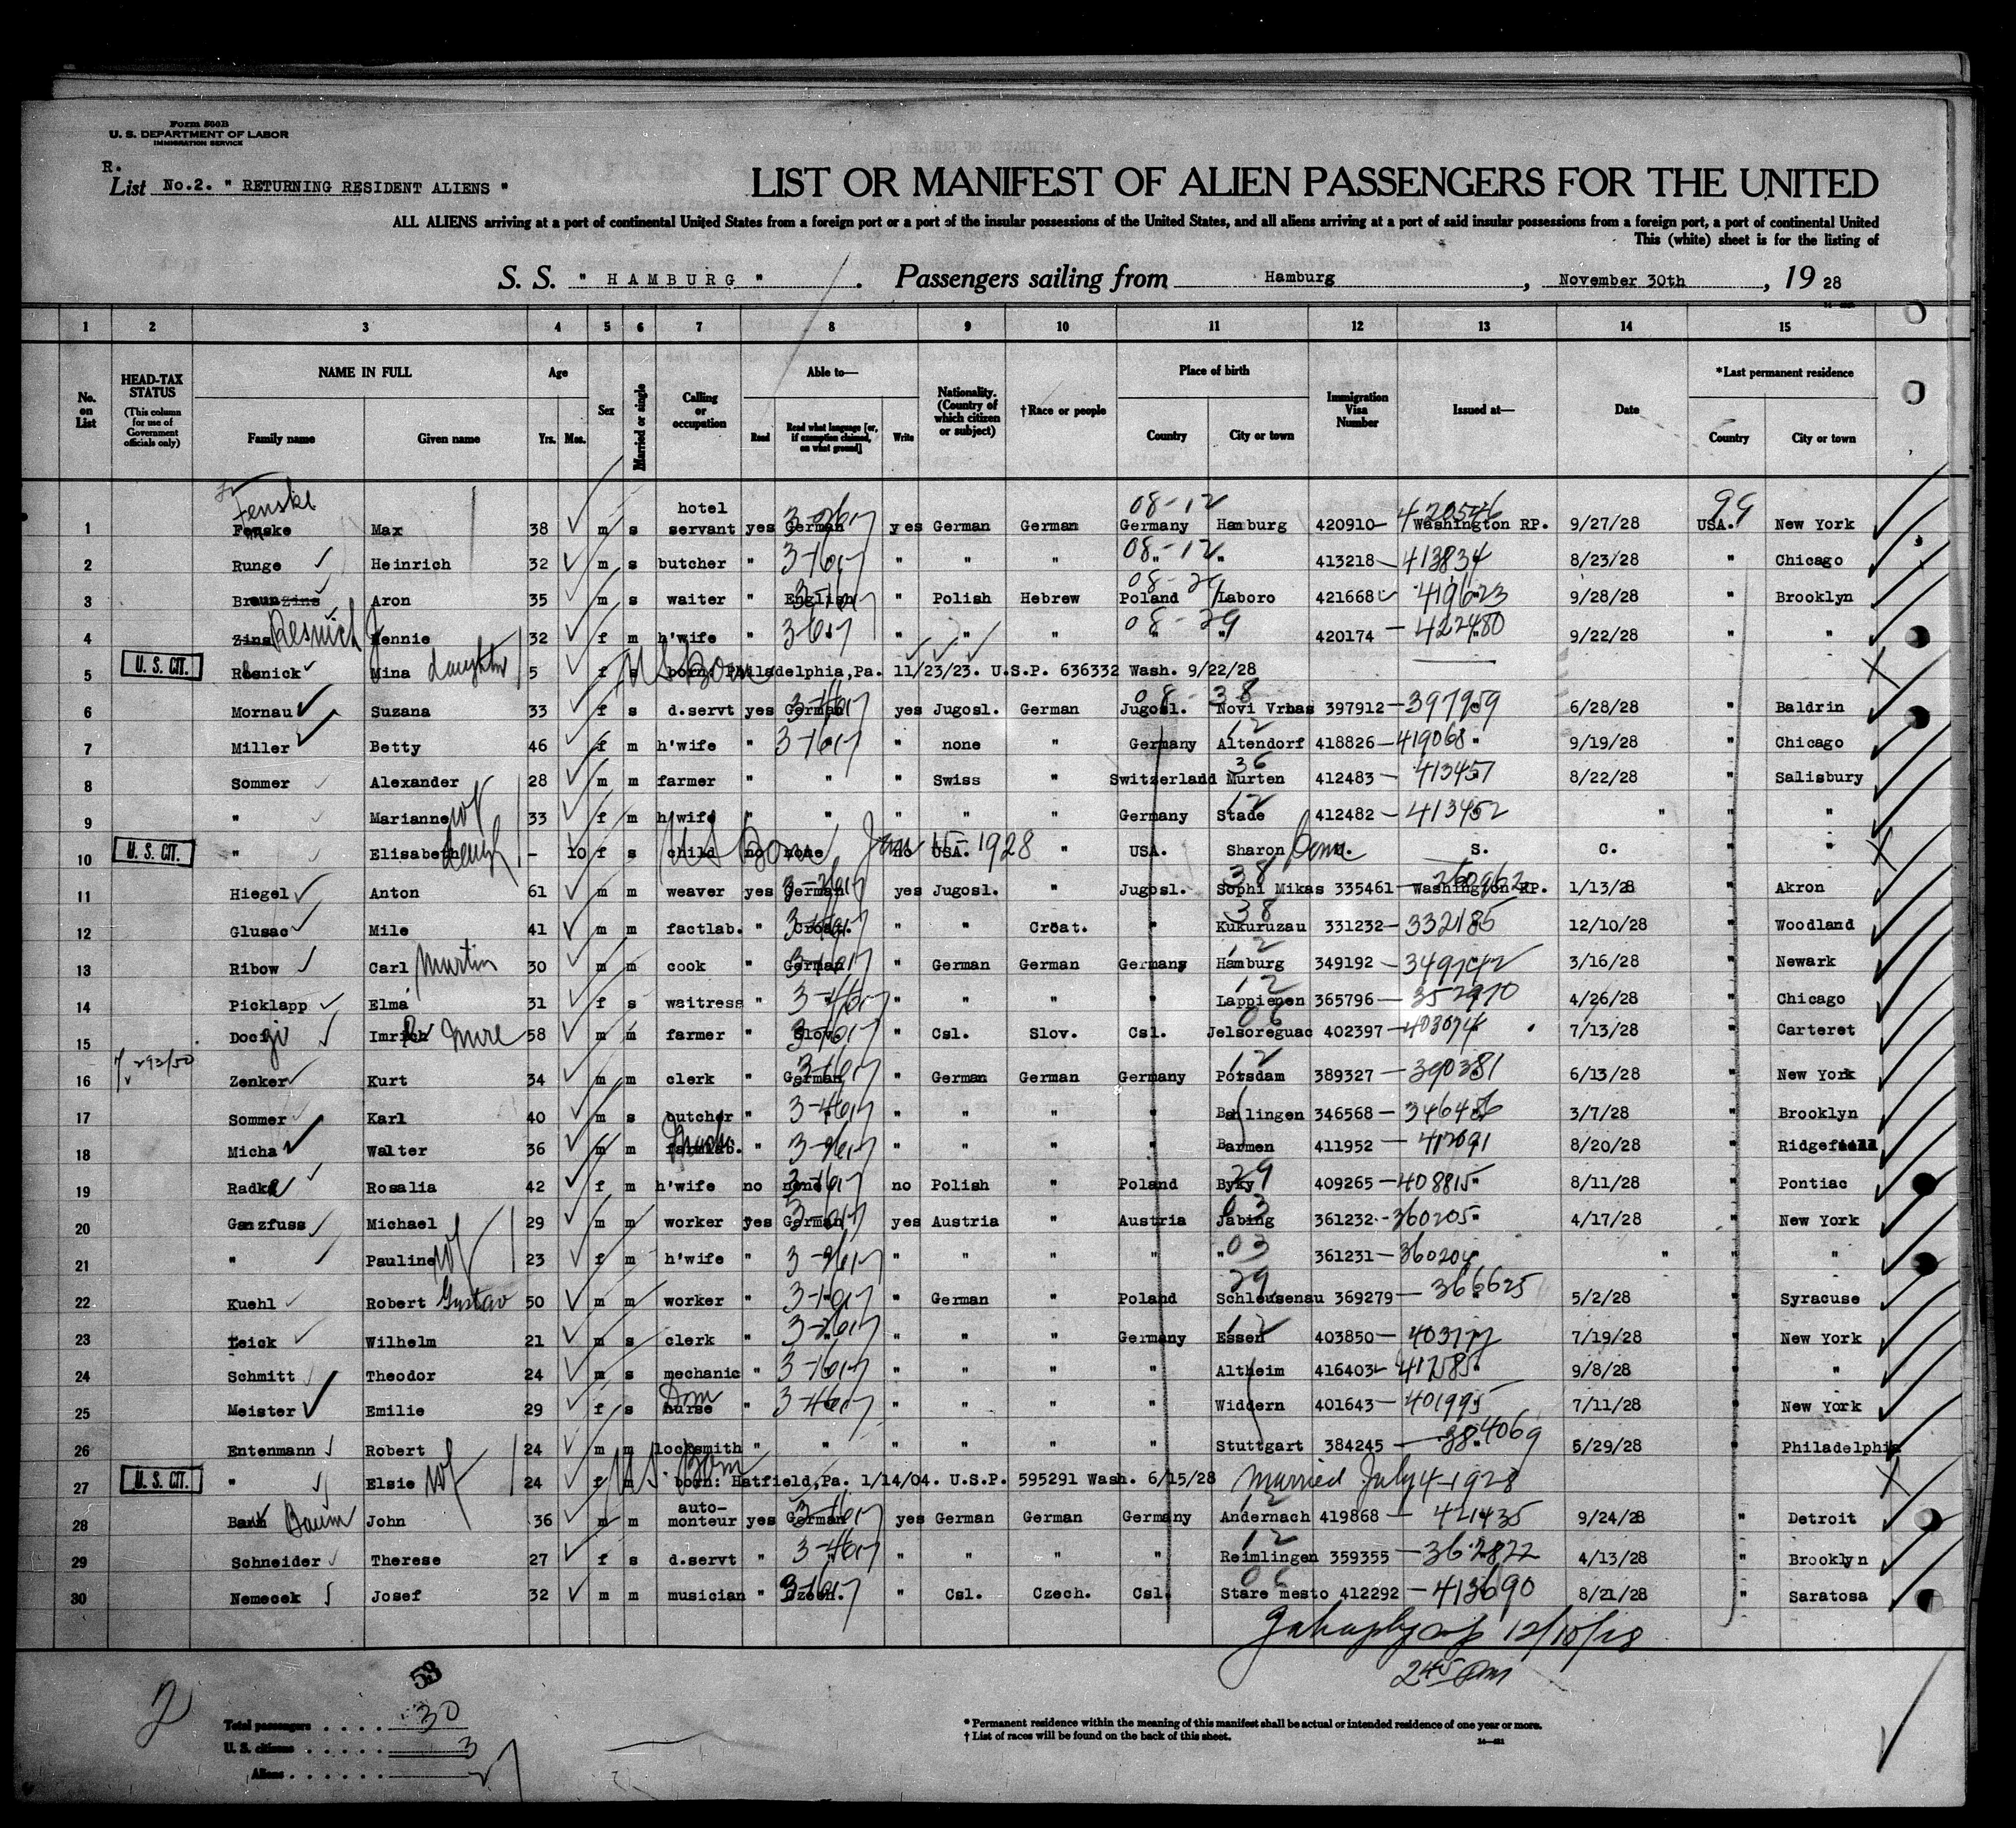 Form 500B
U. S. DEPARTMENT OF LABOR
IMMIGRATION SERVICE
R.
List No.2. " RETURNING RESIDENT ALIENS "
LIST OR MANIFEST OF ALIEN PASSENGERS FOR THE UNITED
ALL ALIENS arriving at a port of continental United States from a foreign port or a port of the insular possessions of the United States, and all aliens arriving at a port of said insular possessions from a foreign port, a port of continental United
This (white) sheet is for the listing of
S. S. " HAMBURG " . Passengers sailing from Hamburg , November 30th , 19 28
1 2 3 4 5 6 7 8 9 10 11 12 13 14 15
No. on List
HEAD-TAX STATUS (This column for use of Government officials only)
NAME IN FULL Family name Given name
Age Yrs. Mos.
Sex
Married or single
Calling or occupation
Able to— Read Read what language [or, if exemption claimed, on what ground] Write
Nationality. (Country of which citizen or subject)
†Race or people
Place of birth Country City or town
Immigration Visa Number
Issued at—
Date
*Last permanent residence Country City or town
1 Fenske Fenske Max 38 m s hotel servant yes German yes German German 08-12 Germany Hamburg 420910 Washington RP. 9/27/28 99 USA. New York
2 Runge Heinrich 32 m s butcher " 3-1617 " " " 08-12 " " 413218 413834 8/23/28 " Chicago
3 Braun Aron 35 m s waiter " English " Polish Hebrew Poland Laboro 421668 419623 9/28/28 " Brooklyn
4 Zins Resnick Jennie 32 f m h'wife " " " " 08-29 " " 420174 422480 9/22/28 " "
5 U. S. CIT. Resnick Mina daughter 5 f s US Born born: Philadelphia,Pa. 11/23/23. U.S.P. 636332 Wash. 9/22/28
6 Mornau Suzana 33 f s d.servt yes German yes Jugosl. German Jugosl. 38 Novi Vrbas 397912 397959 6/28/28 " Baldrin
7 Miller Betty 46 f m h'wife " 3-1617 " none " Germany 12 Altendorf 418826 419068 9/19/28 " Chicago
8 Sommer Alexander 28 m m farmer " " " Swiss " Switzerland 36 Murten 412483 413451 8/22/28 " Salisbury
9 " Marianne wf 33 f m h'wife " " " " " Germany 12 Stade 412482 413452 " " "
10 U. S. CIT. " Elisabeth daugh - 10 f s child US Born no none Jan 15-1928 no USA. " USA. Sharon Conn. S. C. " "
11 Hiegel Anton 61 m m weaver yes German yes Jugosl. " Jugosl. 38 Sophi Mikas 335461 Washington RP. 1/13/28 " Akron
12 Glusac Mile 41 m m factlab. " Croat. " " Croat. " 38 Kukuruzau 331232 332185 12/10/28 " Woodland
13 Ribow Carl Martin 30 m m cook " German " German German Germany 12 Hamburg 349192 3/16/28 " Newark
14 Picklapp Elma 31 f s waitress " " " " " 12 Lappienen 365796 4/26/28 " Chicago
15 Imrich Imre 58 m m farmer " Slov. " Csl. Slov. Csl. 06 Jelsoreguac 402397 403074 7/13/28 " Carteret
16 Zenker Kurt 34 m m clerk " German " German German Germany 12 Potsdam 389327 390381 6/13/28 " New York
17 Sommer Karl 40 m s butcher " " " " " Bahlingen 346568 346486 3/7/28 " Brooklyn
18 Micha Walter 36 m m " " " " " Barmen 411952 8/20/28 " Ridgefield
19 Radke Rosalia 42 f m h'wife no none no Polish " Poland 29 Byky 409265 408815 8/11/28 " Pontiac
20 Ganzfuss Michael 29 m m worker yes German yes Austria " Austria 03 Jabing 361232 360205 4/17/28 " New York
21 " Pauline wf 23 f m h'wife " " " " " " 03 361231 360204 " " "
22 Kuehl Robert Gustav 50 m m worker " " German " Poland 29 Schleusenau 369279 366625 5/2/28 " Syracuse
23 Leick Wilhelm 21 m s clerk " " " " Germany 12 Essen 403850 7/19/28 " New York
24 Schmitt Theodor 24 m s mechanic " 3-1617 " " " " Altheim 416403 417585 9/8/28 " "
25 Meister Emilie 29 f s Dom nurse " " " " " Widdern 401643 401995 7/11/28 " New York
26 Entenmann Robert 24 m m locksmith " " " " " " Stuttgart 384245 384069 5/29/28 " Philadelphia
27 U. S. CIT. " Elsie wf 24 f m US Born born: Hatfield,Pa. 1/14/04. U.S.P. 595291 Wash. 6/15/28 Married July 4-1928
28 Baum John 36 m m auto-monteur yes German yes German German Germany 12 Andernach 419868 421435 9/24/28 " Detroit
29 Schneider Therese 27 f s d.servt " " " " " 12 Reimlingen 359355 362822 4/13/28 " Brooklyn
30 Nemecek Josef 32 m m musician " Czech. " Csl. Czech. Csl. 06 Stare mesto 412292 413690 8/21/28 " Saratosa
12/10/28
2 45
53
2
Total passengers . . . . 30
U. S. citizens . . . . . 3
Aliens . . . . . .
* Permanent residence within the meaning of this manifest shall be actual or intended residence of one year or more.
† List of races will be found on the back of this sheet.